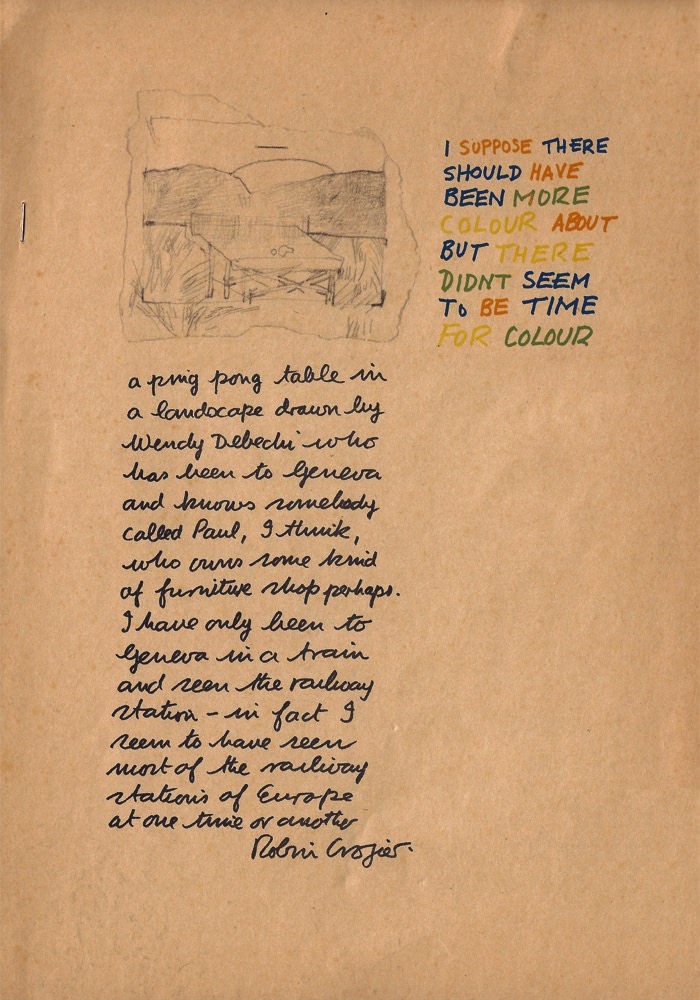 I SUPPOSE THERE
SHOULD HAVE
BEEN MORE
COLOUR ABOUT
BUT THERE
DIDNT SEEM
TO BE TIME
FOR COLOUR
a ping pong table in
a landscape drawn by
Wendy Debechi who
has been to Geneva
and knows somebody
called Paul, I think,
who owns some kind
of furniture shop perhaps.
I have only been to
Geneva in a train
and seen the railway
station - in fact I
seem to have seen
most of the railway
stations of Europe
at one time or another
Robin Crozier.